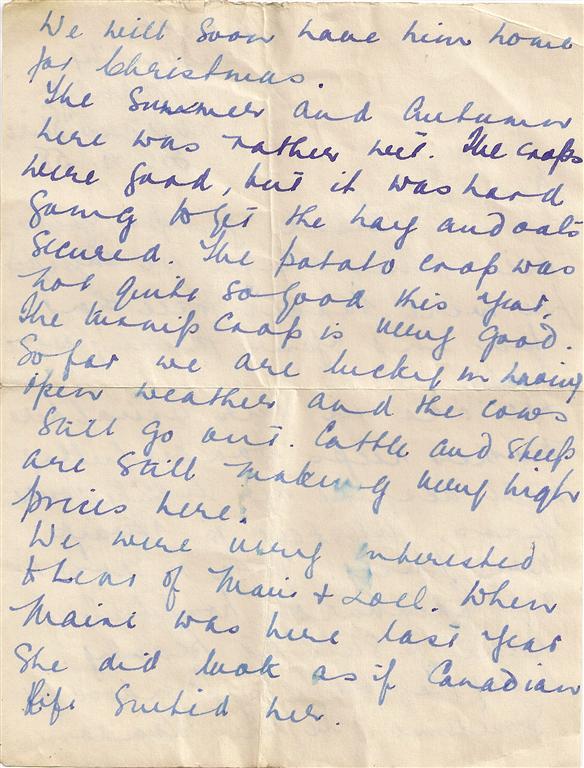 We will soon have him home
for Christmas.
The Summer and Autumn
here was rather wet. The crops
were good, but it was hard
going to get the hay and oats
secured. The potato crop was
not quite so good this year,
The turnip crop is very good.
So far we are lucky in having
open weather and the cows
still go out. Cattle and sheep
are still making very high
prices here.
We were very interested
to hear of & When
Maire was here last year
She did look as if Canadian
life suited her.